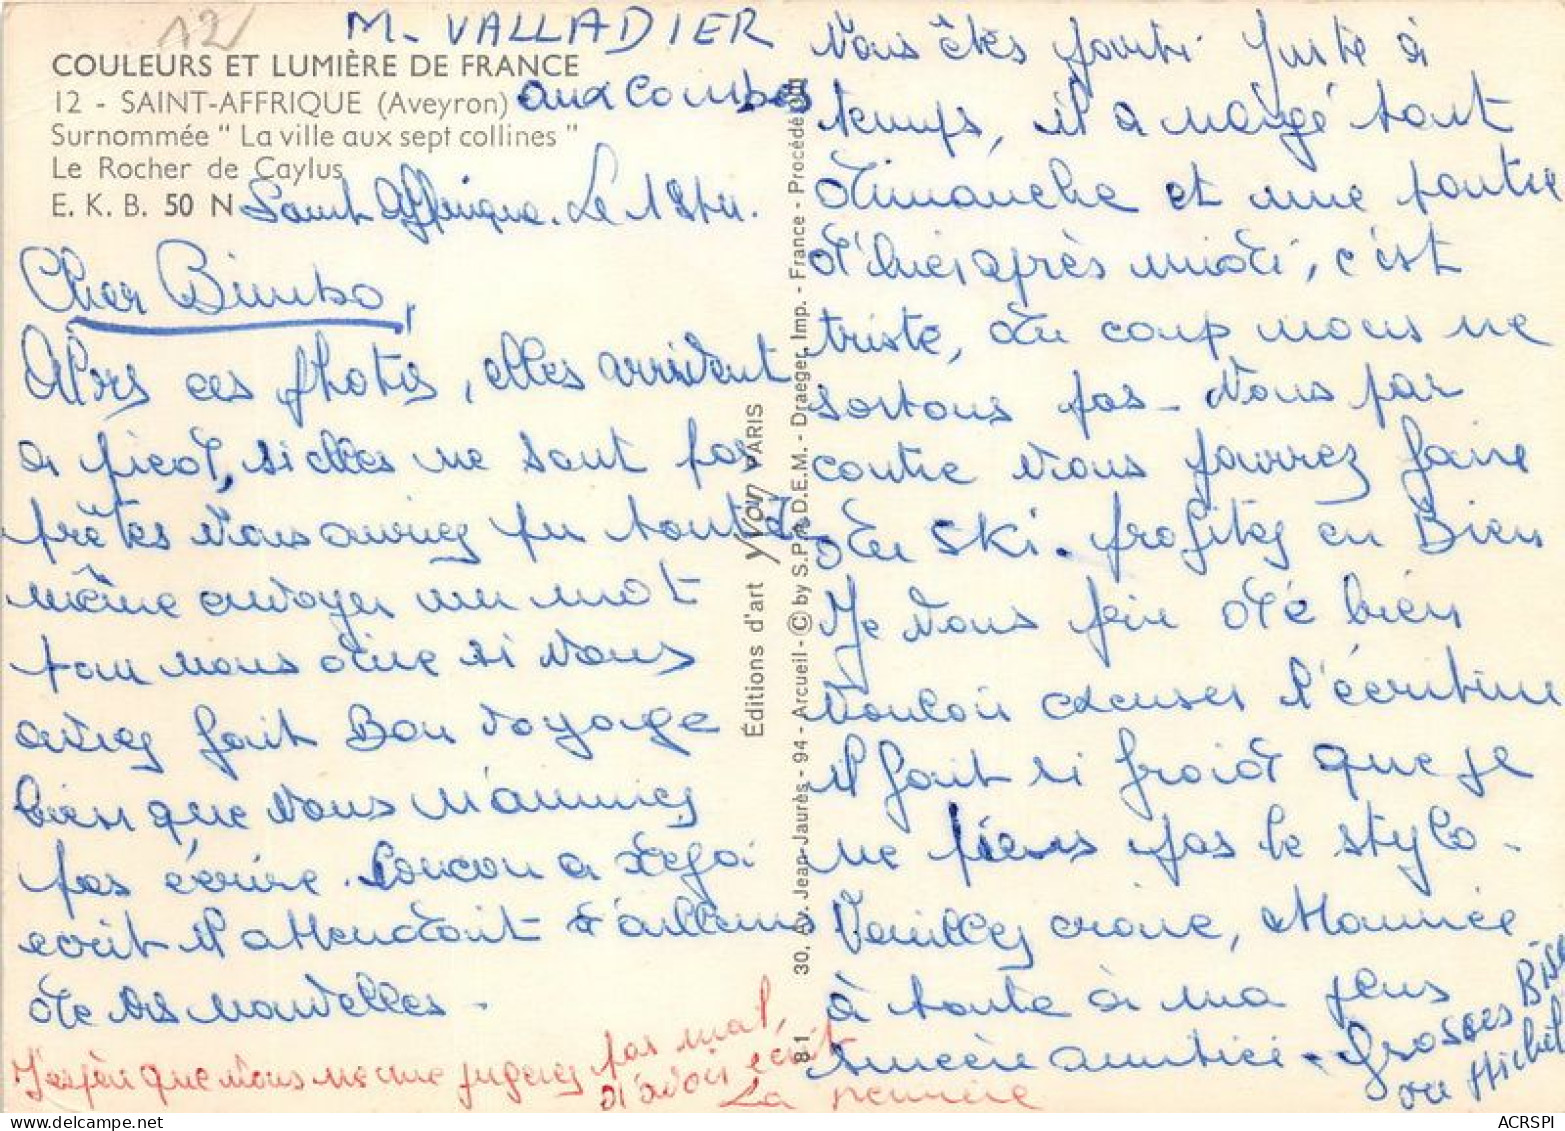 12
M. VALLADIER
aux Combes
COULEURS ET LUMIÈRE DE FRANCE
12 - SAINT-AFFRIQUE (Aveyron)
Surnommée " La ville aux sept collines "
Le Rocher de Caylus
E. K. B. 50 N
Saint Affrique. Le
Cher Bimbo,
Alors ces photos, elles arrivent
à pied, si elles ne sont pas
prêtes vous auriez pu tout de
même envoyer un mot
pour nous dire si vous
aviez fait Bon voyage
bien que vous n'aimiez
pas écrire. Loulou a déjà
écrit il attendait d'ailleurs
de vos nouvelles.
J'espère que vous ne me jugerez pas mal,
d'avoir écrit
La première
Éditions d'art Yvon PARIS
30, Av. Jean-Jaurès - 94 - Arcueil - © by S.P.A.D.E.M. - Draeger, Imp. - France - Procédé
81
Vous êtes parti juste à
temps, il a neigé tout
Dimanche et une partie
d'hier après midi, c'est
triste, du coup nous ne
sortons pas. Vous par
contre vous pourrez faire
du ski. profitez en Bien
Je vous prie de bien
vouloir excuser l'écriture
il fait si froid que je
ne tiens pas le stylo.
Veuillez croire, Maurice
à toute à ma plus
sincère amitié. Grosses Bises
Michel
ACRSPI